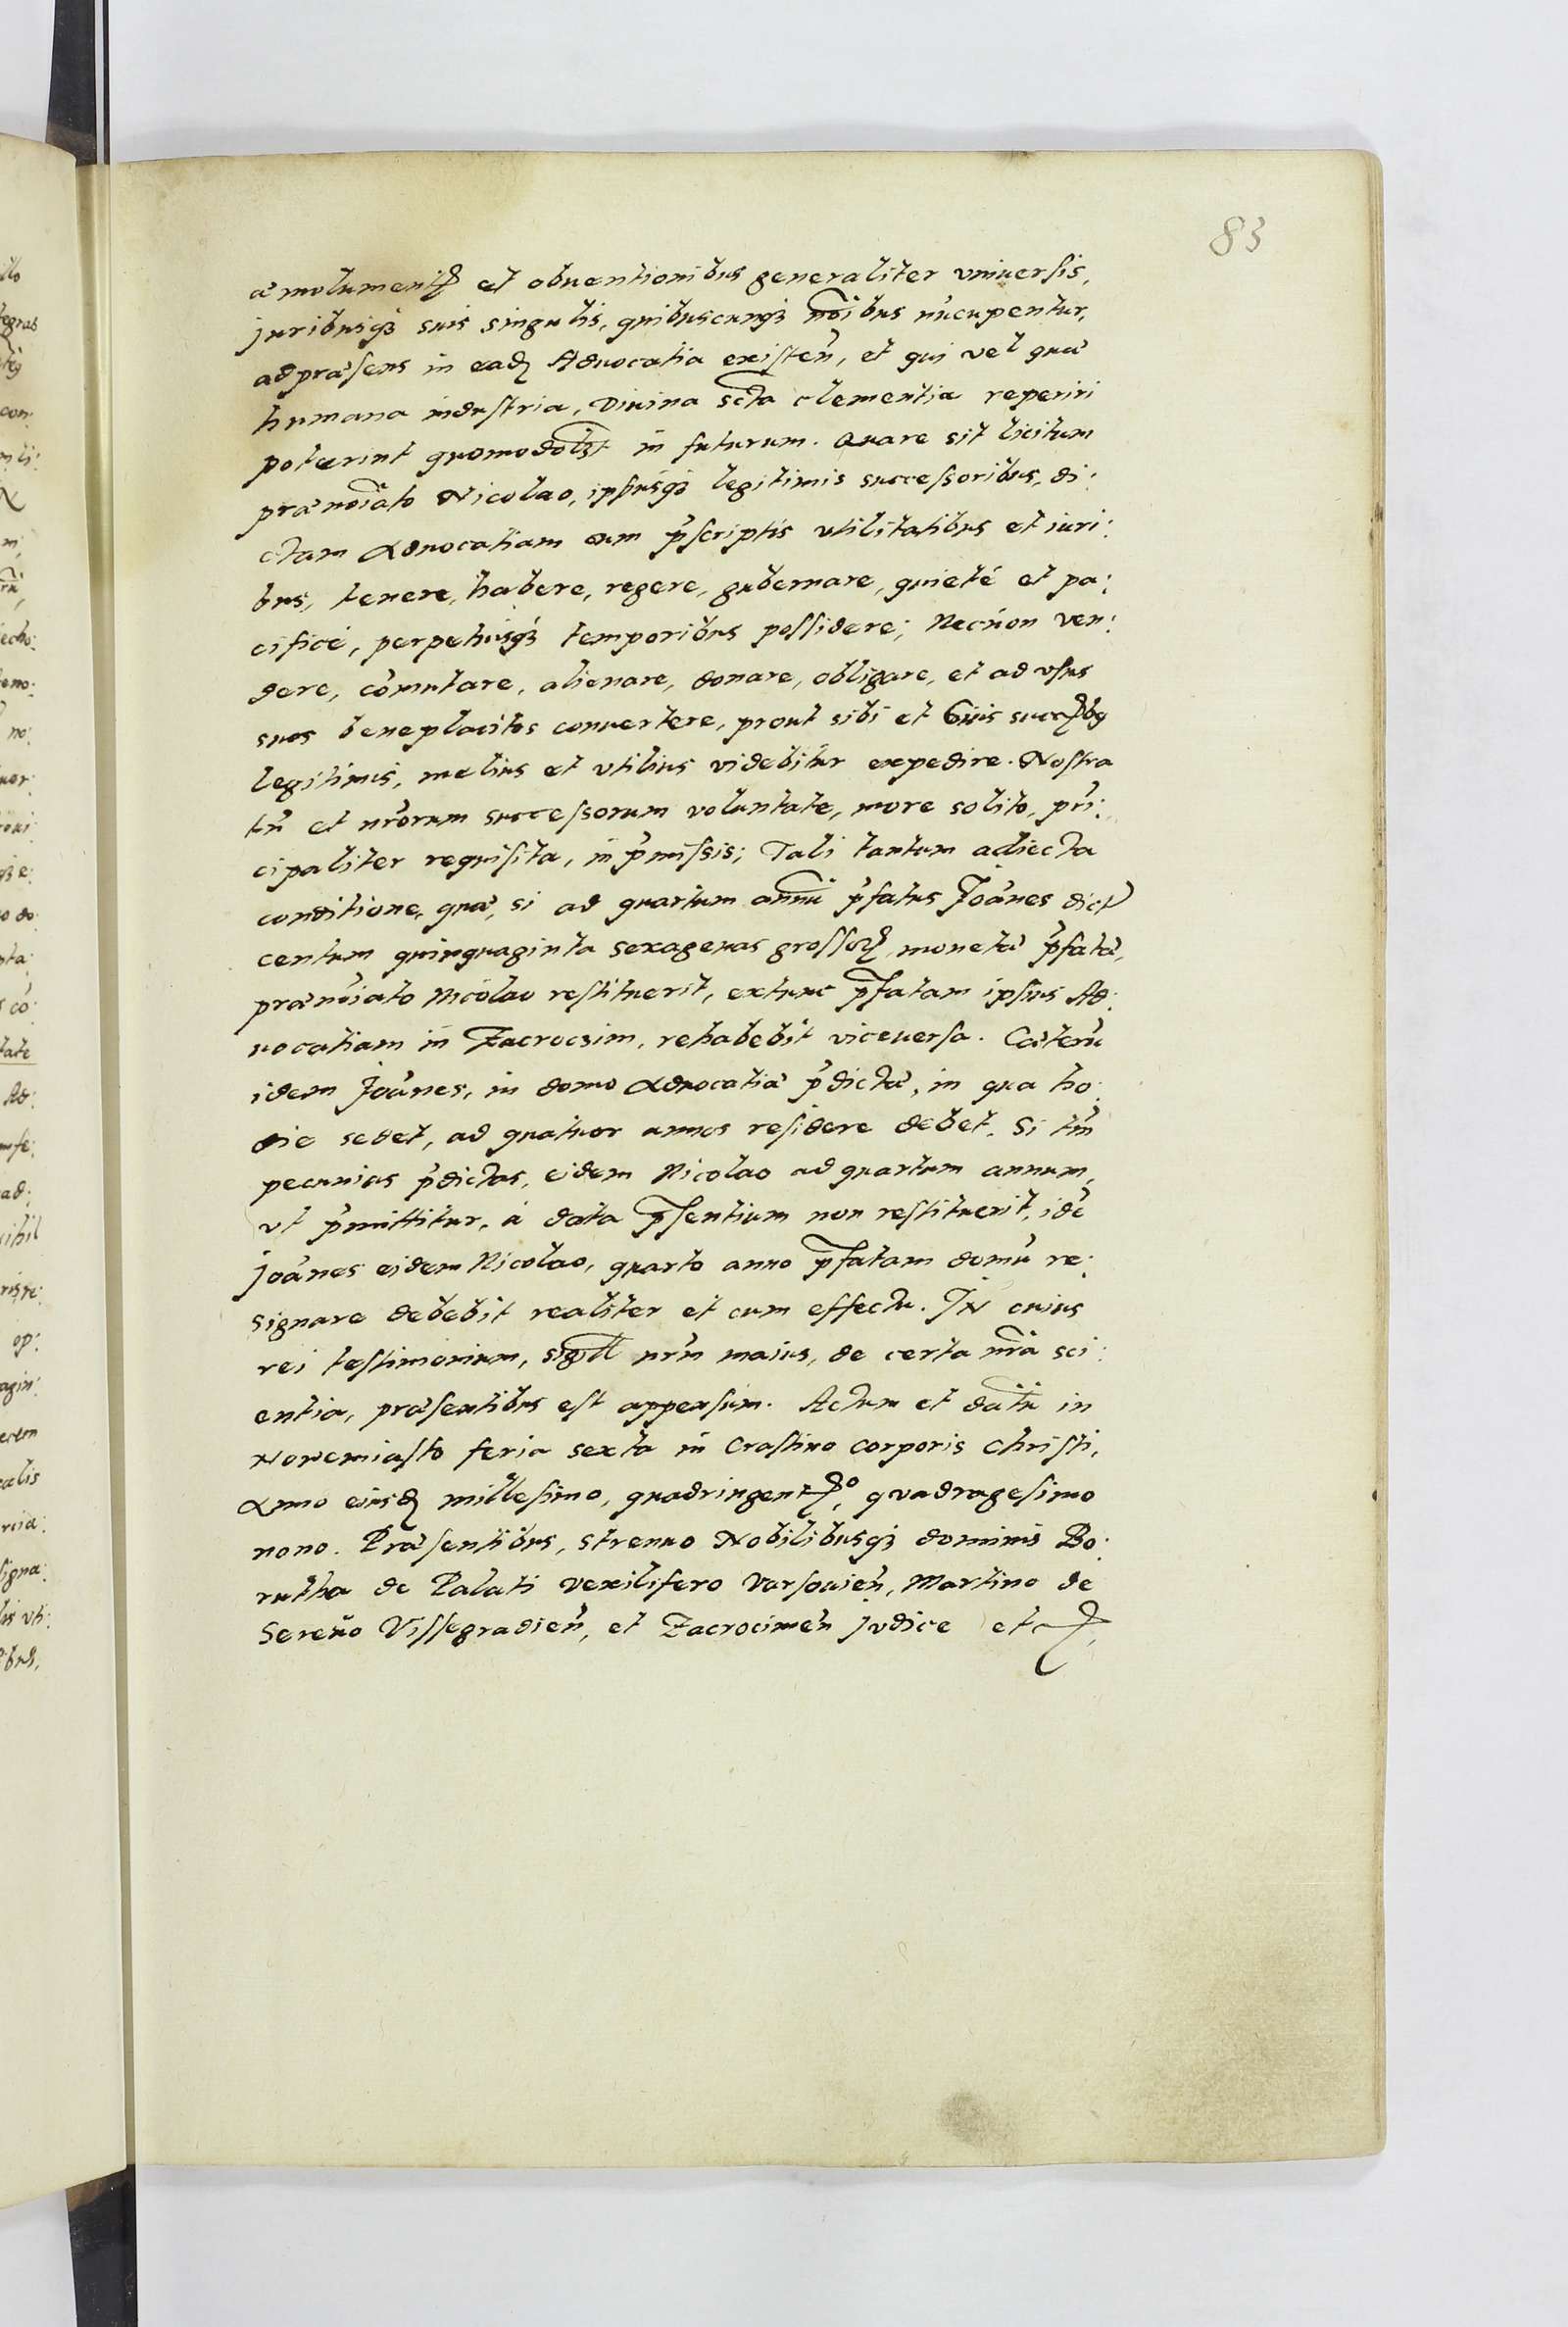 83
æmolumentꝭ et obuentionibus generaliter vniuersis,
juribusqꝫ suis singulis, quibuscunqꝫ nōibus nūcupentur,
ad præsens in eadꝫ Aduocatia existeñ, et qui vel quæ
humana industria, Diuina scta clementia reperiri
poterint quomodolꝫt in futurum. Quare sit licitum
prænoiāto Nicolao, ipsiusqꝫ legitimis successoribus, di:
ctam Aduocatiam cum p̄scriptis vtilitatibus et iuri:
bus, tenere, habere, regere, gubernare, quietè et pa:
cificè, perpetuisqꝫ temporibus possidere; Necnon ven:
dere, cōmutare, alienare, donare, obligare, et ad vsus
suos beneplacitos conuertere, prout sibi et suis succꝭbꝫ
legitimis, melius et vtilius videbitur expedire. Nostra
tn̄ et nr̄orum successorum voluntate, more solito, prī:
cipaliter requisita, in p̄missis; Tali tantum adiecta
conditione, quæ, si ad quartum annū p̄fatus Joānes dictꝭ
centum quinquaginta sexagenas grossoꝝ, monetæ p̄fatæ,
prænoīato Nicolao restituerit, extunc p̄fatam ipsius Ad:
uocatiam in Zacroczim, rehabebit viceuersa. Cæterū
idem Joānes, in domo Aduocatiæ p̄dictæ, in qua ho:
die sedet, ad quatuor annos residere debet. Si tn̄
pecunias p̄dictas, eidem Nicolao ad quartum annum,
vt p̄mittitur, à data p̄sentium non restituerit, idē
Joānes eidem Nicolao, quarto anno p̄fatam domū re:
signare debebit realiter et cum effectu. IN cuius
rei testimonium, sigill nr̄m maius, de certa nr̄a sci:
entia, præsentibus est appensum. Actum et datū in
Nowemiasto feria sexta in Crastino Corporis Christi,
Anno eiusdꝫ millesimo, quadringentꝭo, quadragesimo
nono. Præsentibus, strenuo Nobilibusqꝫ dominis Bo:
rutha de Palati vexilifero Varsouień, Martino de
Sereño Vissegradień, et Zacrocimeń Judice etꝭ.